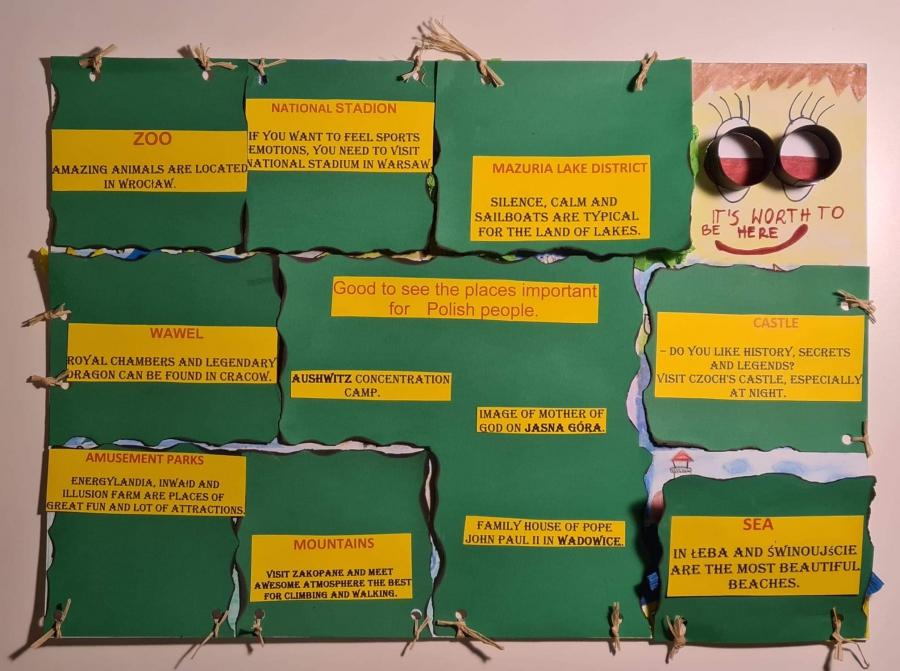 ZOO
AMAZING ANIMALS ARE LOCATED
IN WROCŁAW.
NATIONAL STADION
IF YOU WANT TO FEEL SPORTS
EMOTIONS, YOU NEED TO VISIT
NATIONAL STADIUM IN WARSAW.
MAZURIA LAKE DISTRICT
SILENCE, CALM AND
SAILBOATS ARE TYPICAL
FOR THE LAND OF LAKES.
IT'S WORTH TO
BE HERE
WAWEL
ROYAL CHAMBERS AND LEGENDARY
DRAGON CAN BE FOUND IN CRACOW.
Good to see the places important
for Polish people.
AUSHWITZ CONCENTRATION
CAMP.
IMAGE OF MOTHER OF
GOD ON JASNA GÓRA.
FAMILY HOUSE OF POPE
JOHN PAUL II IN WADOWICE.
CASTLE
– DO YOU LIKE HISTORY, SECRETS
AND LEGENDS?
VISIT CZOCH'S CASTLE, ESPECIALLY
AT NIGHT.
AMUSEMENT PARKS
ENERGYLANDIA, INWAłD AND
ILLUSION FARM ARE PLACES OF
GREAT FUN AND LOT OF ATTRACTIONS.
MOUNTAINS
VISIT ZAKOPANE AND MEET
AWESOME ATMOSPHERE THE BEST
FOR CLIMBING AND WALKING.
SEA
IN ŁEBA AND ŚWINOUJŚCIE
ARE THE MOST BEAUTIFUL
BEACHES.